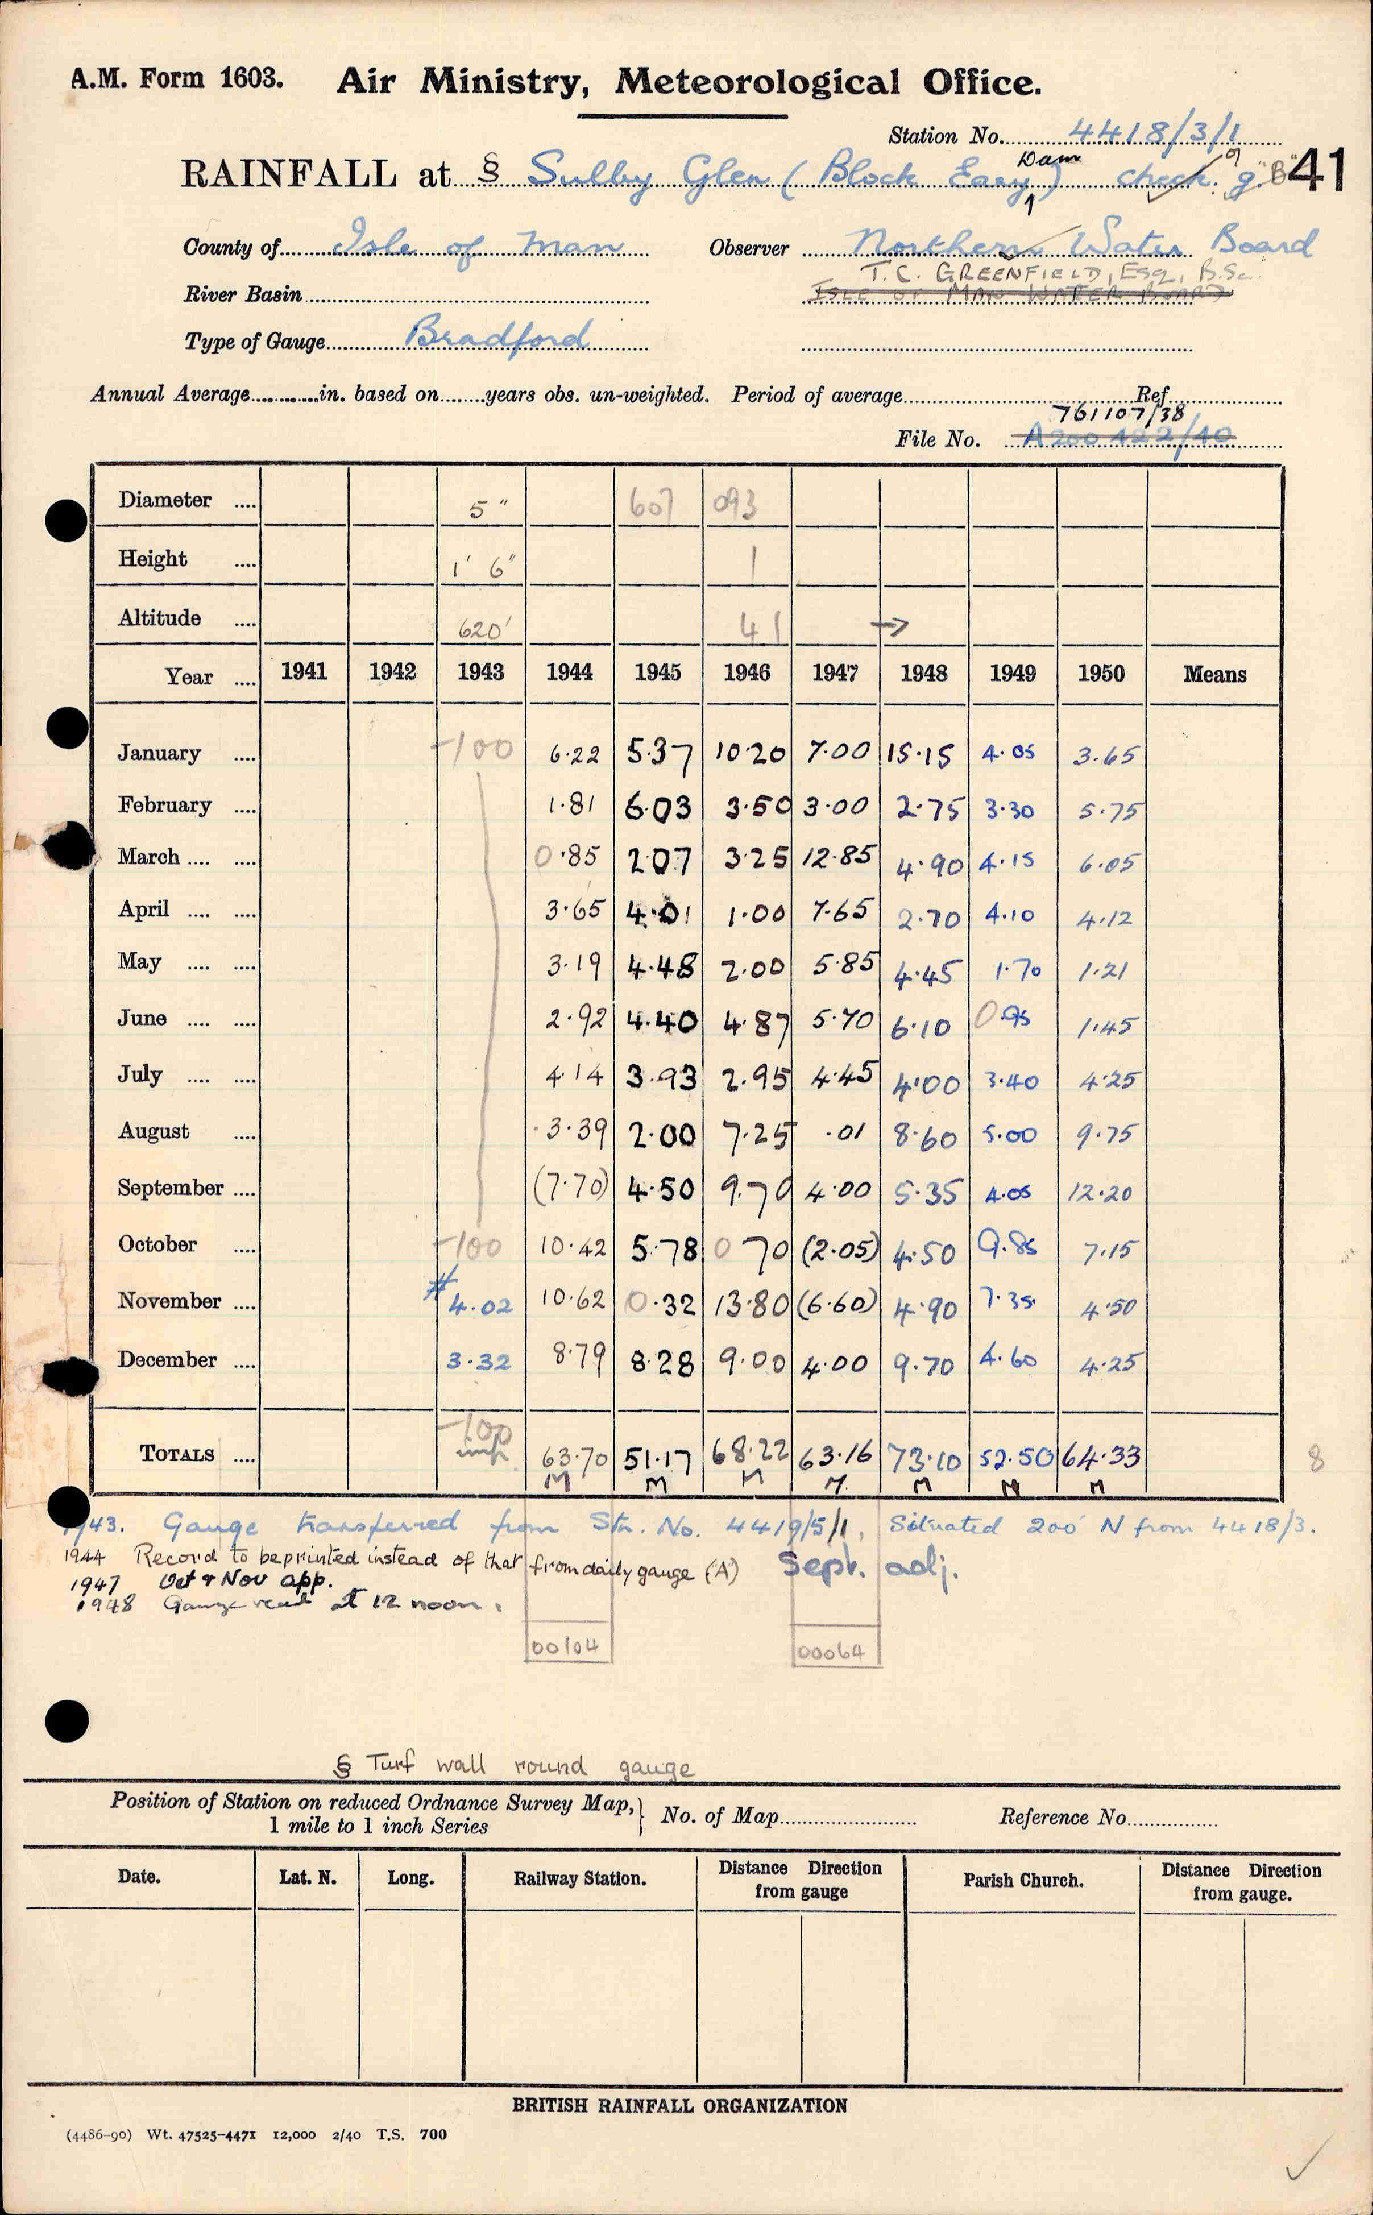 A.M. Form 1603. Air Ministry, Meteorological Office.
Station No. 4418/3/1
RAINFALL at § Sulby Glen (Block Eary Dam) check g. "B" 41
County of Isle of Man Observer Northern Water Board
T.C. GREENFIELD, Esq., B.Sc.
River Basin ISLE OF MAN WATER BOARD
Type of Gauge Bradford
Annual Average in. based on years obs. un-weighted. Period of average Ref
761107/38
File No. A200422/40
Diameter .... 5" 607 093
Height .... 1' 6" 1
Altitude .... 620' 41 →
Year .... 1941 1942 1943 1944 1945 1946 1947 1948 1949 1950 Means
January .... -100 6.22 5.37 10.20 7.00 15.15 4.05 3.65
February .... 1.81 6.03 3.50 3.00 2.75 3.30 5.75
March .... .... 0.85 2.07 3.25 12.85 4.90 4.15 6.05
April .... .... 3.65 4.01 1.00 7.65 2.70 4.10 4.12
May .... .... 3.19 4.48 2.00 5.85 4.45 1.70 1.21
June .... .... 2.92 4.40 4.87 5.70 6.10 0.95 1.45
July .... .... 4.14 3.93 2.95 4.45 4.00 3.40 4.25
August .... 3.39 2.00 7.25 .01 8.60 5.00 9.75
September .... (7.70) 4.50 9.70 4.00 5.35 4.05 12.20
October .... -100 10.42 5.78 0 70 (2.05) 4.50 9.85 7.15
November .... # 4.02 10.62 0.32 13.80 (6.60) 4.90 7.35 4.50
December .... 3.32 8.79 8.28 9.00 4.00 9.70 4.60 4.25
-100
TOTALS .... imp. 63.70 51.17 68.22 63.16 73.10 52.50 64.33 8
M M M M M M M
1943. Gauge transferred from Stn. No. 4419/5/1, Situated 200' N from 4418/3.
1944 Record to be printed instead of that from daily gauge (A) Sept. adj.
1947 Oct & Nov app.
1948 Gauge read at 12 noon.
00104 00064
§ Turf wall round gauge
Position of Station on reduced Ordnance Survey Map, } No. of Map Reference No.
1 mile to 1 inch Series
Date. Lat. N. Long. Railway Station. Distance Direction from gauge Parish Church. Distance Direction from gauge.
BRITISH RAINFALL ORGANIZATION
(4486-90) Wt. 47525-4471 12,000 2/40 T.S. 700